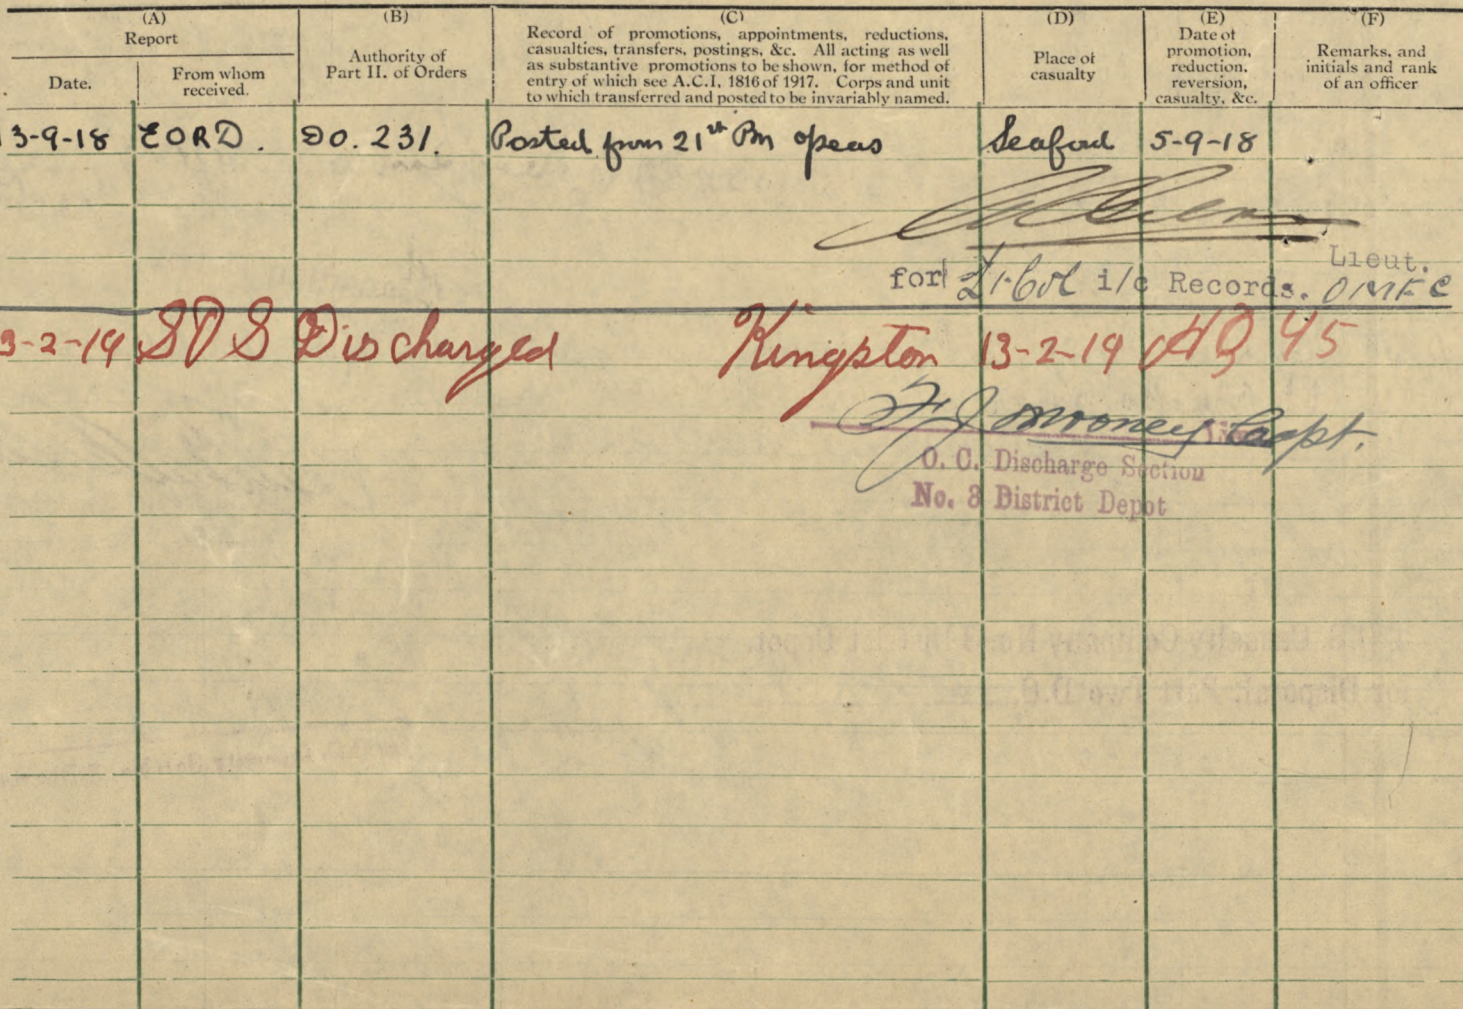 (A) (B) (C) (D) (E) (F)
Report
Date.
From whom
received.
Authority of
Part II. of Orders
Record of promotions, appointments, reductions,
casualties, transfers, postings, &c. All acting as well
as substantive promotions to be shown, for method of
entry of which see A.C.I, 1816 of 1917. Corps and unit
to which transferred and posted to be invariably named.
Place of
casualty
Date of
promotion,
reduction,
reversion,
casualty, &c.
Remarks, and
initials and rank
of an officer
3-9-18 EORD. DO. 231. Posted from 21st Bn Seaford 5-9-18
Lieut.
for Lt. Col i/c Records. OMFC
3-2-19 SOS Discharged Kingston 13-2-19 45
F J Mooney Capt.
O. C. Discharge Section
No. 3 District Depot